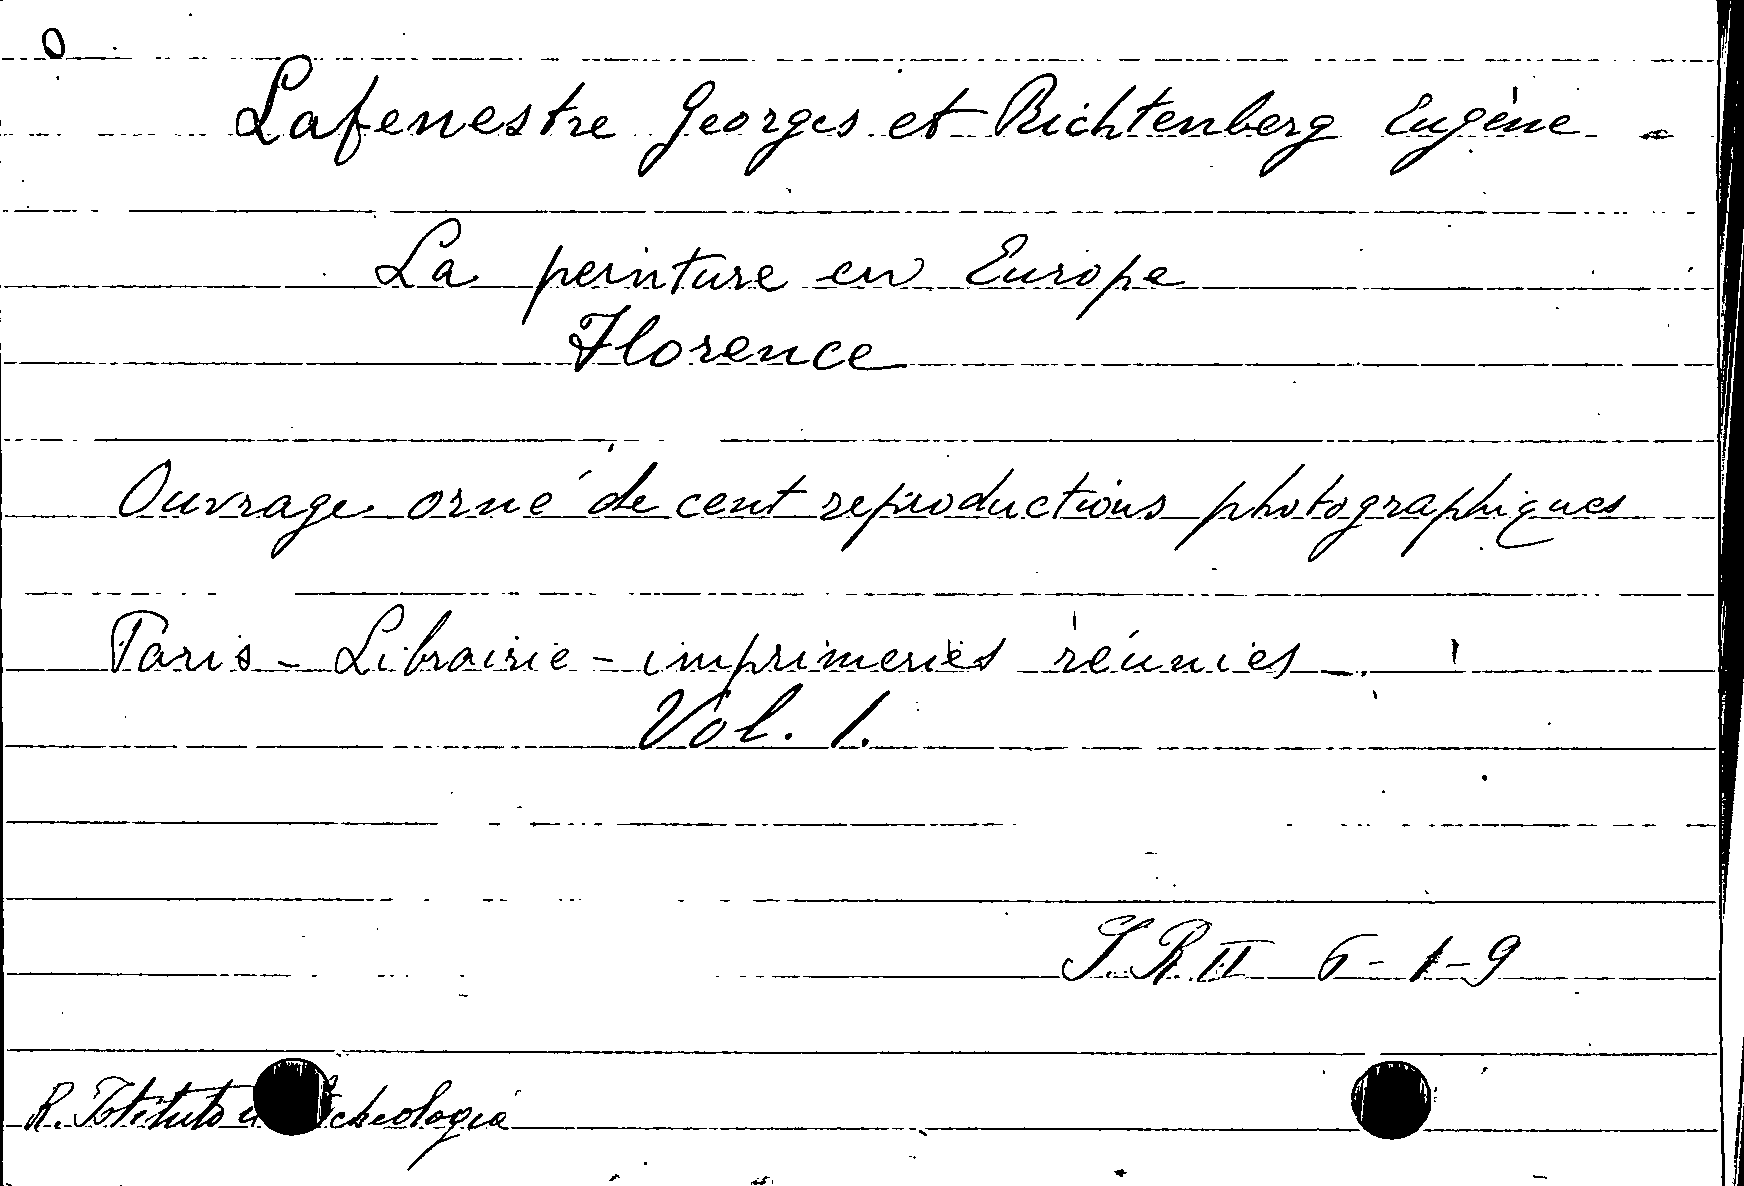 0
Lafenestre Georges et Richtenberg Eugène -
La peinture en Europe
Florence
Ouvrage orné de cent reproductions photographiques
Paris - Librairie - imprimeries réunies -
Vol. 1.
S.R. II 6-1-9
R. Istituto